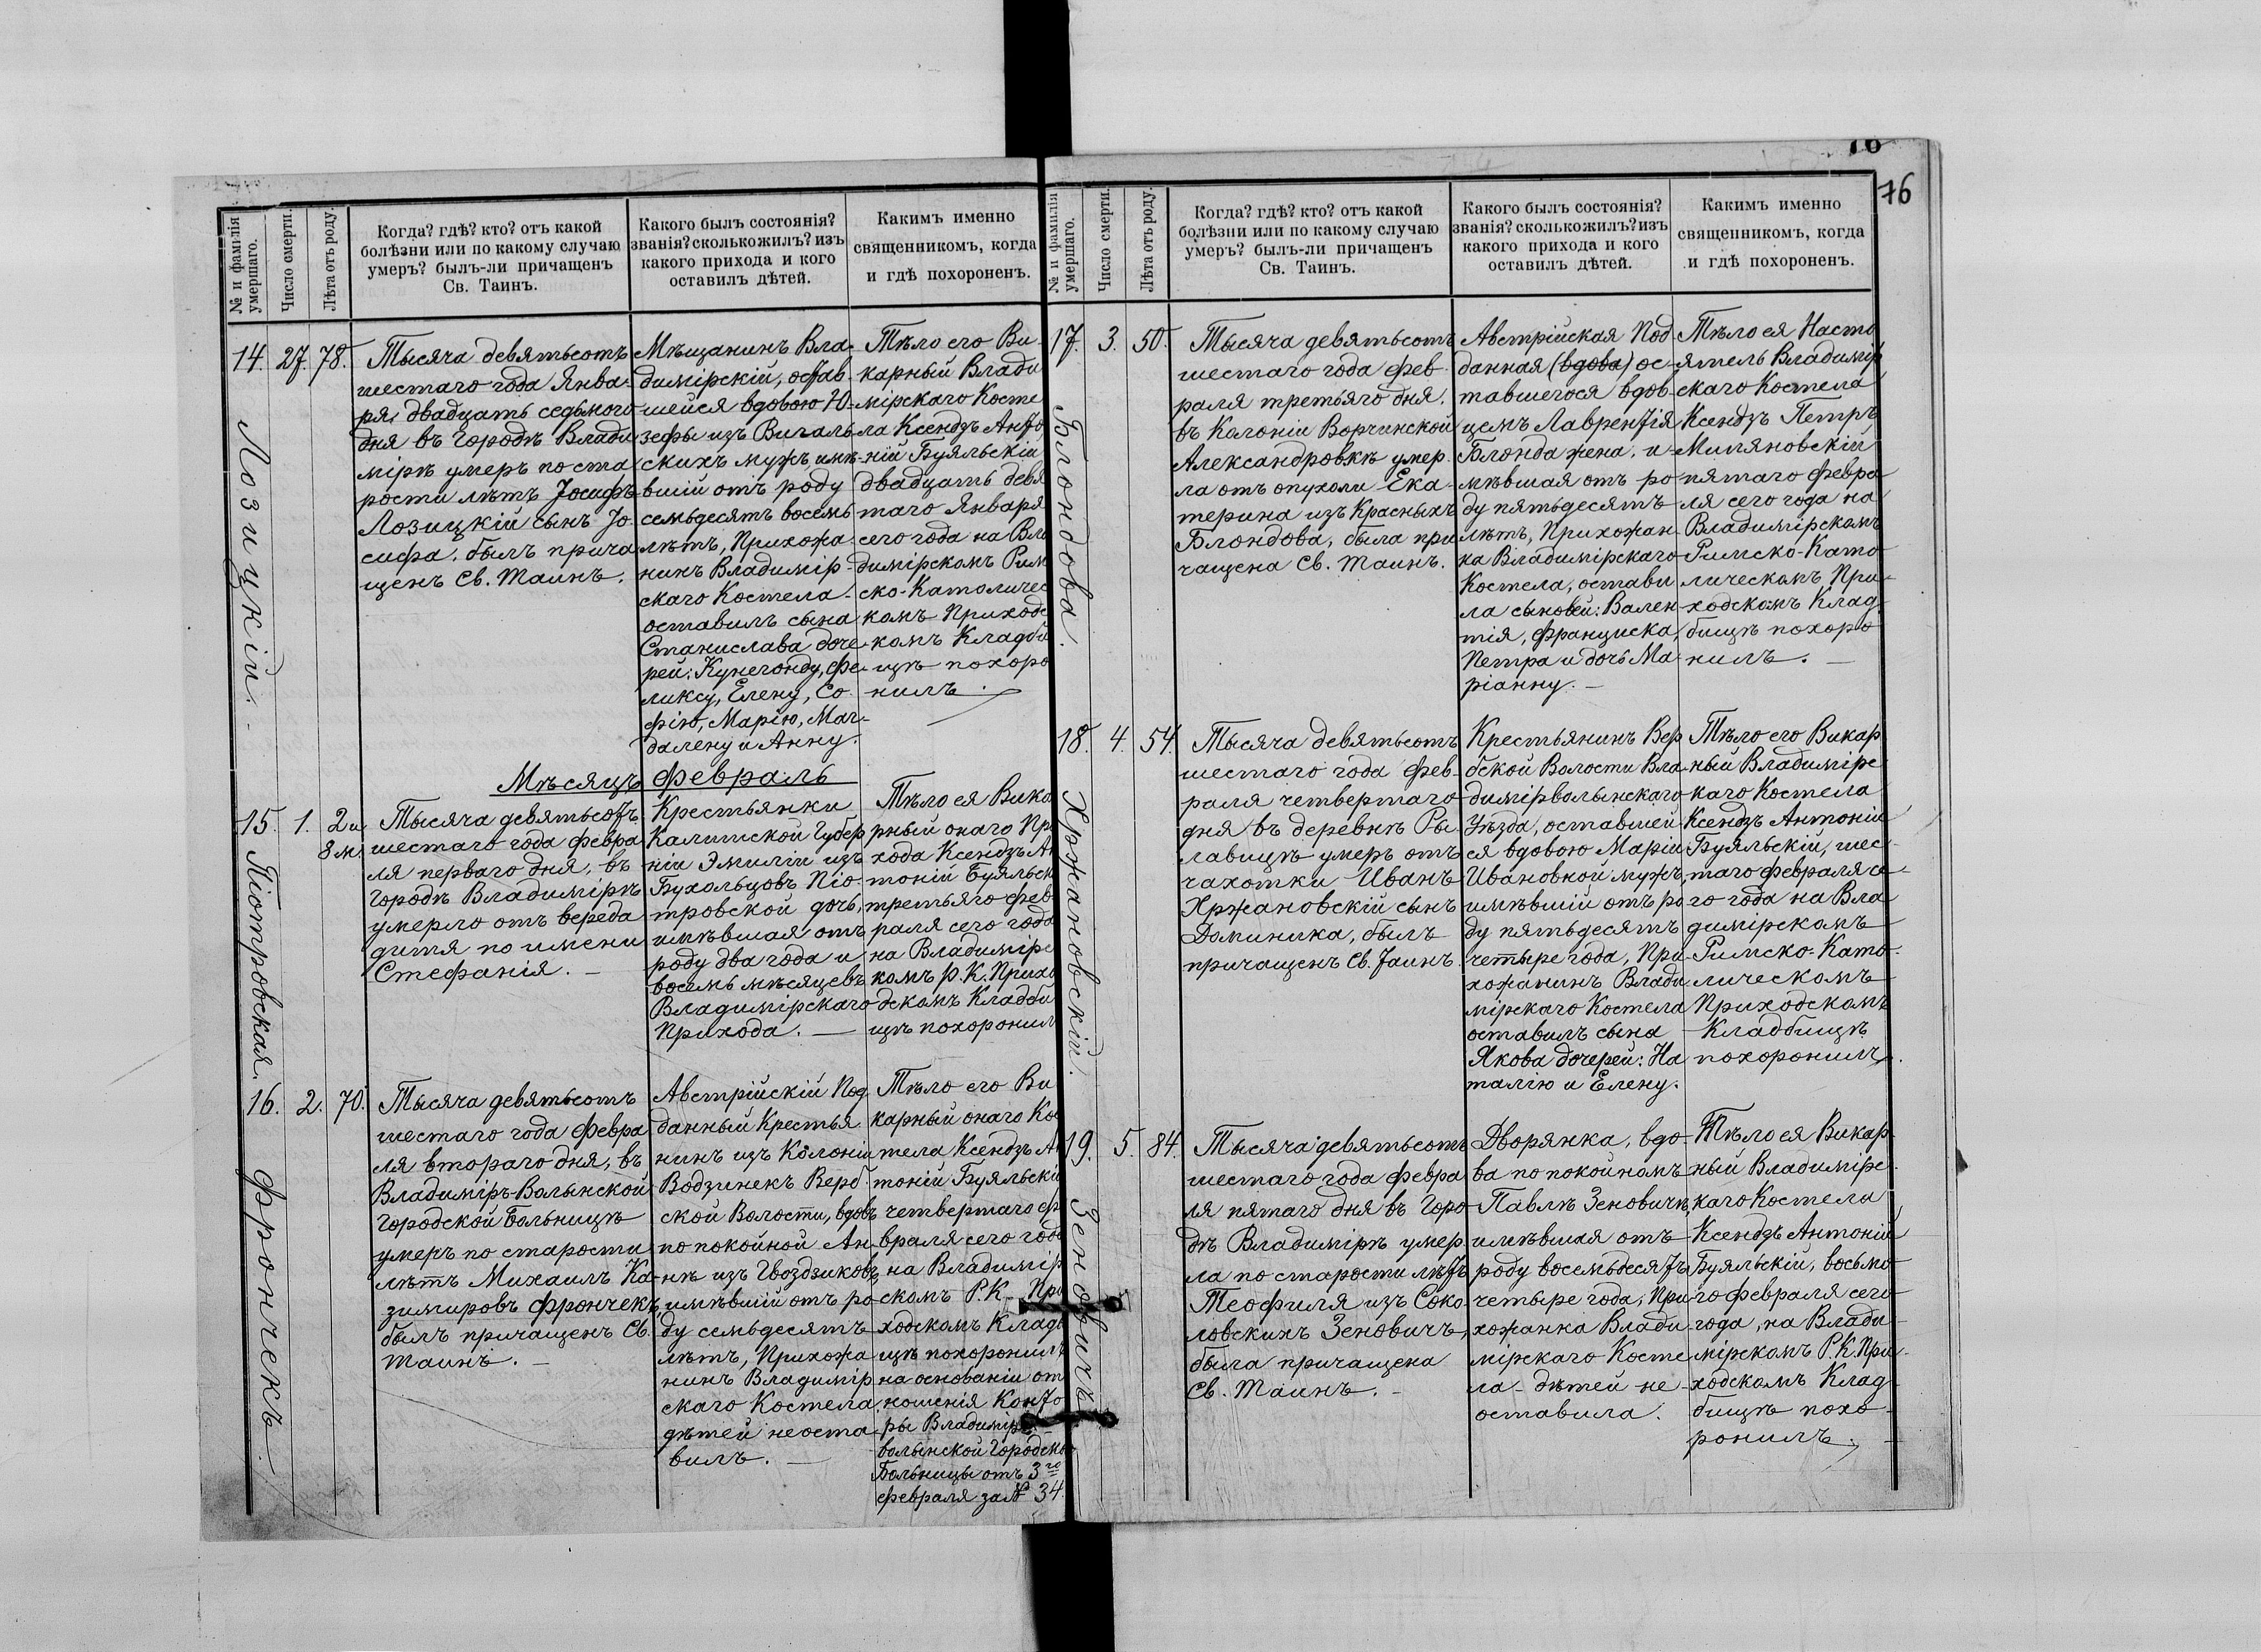 76
76
№ и фамилія умершаго.
Число смерти.
Лѣта отъ роду.
Когда? гдѣ? кто? отъ какой
болѣзни или по какому случаю
умеръ? былъ-ли причащенъ
Св. Таинъ.
Какого былъ состоянія?
званія? сколько жилъ? изъ
какого прихода и кого
оставилъ дѣтей.
Какимъ именно
священникомъ, когда
и гдѣ похороненъ.
14. Лозицкій.
27.
78.
Тысяча девятьсотъ
шестаго года Янва-
ря, двадцать седьмого
дня въ Городѣ Влади
мірѣ умеръ по ста
рости лѣтъ Іосифъ
Лозицкій сынъ Іо
сифа, былъ прича
щенъ Св. Таинъ.
Мѣщанинъ Вла-
димірскій, остав-
шейся вдовою Ю-
зефы изъ Вигаль-
скихъ мужъ, имѣ-
вшій отъ роду
семьдесятъ восемь
лѣтъ, Прихожа-
нинъ Владимір-
скаго Костела -
оставилъ сына
Станислава доче-
рей: Кунегонду, Фе
ликсу, Елену, Со-
фію, Марію, Маг-
далену и Анну.
Тѣло его Ви-
карный Влади
мірскаго Косте
ла Ксендзъ Анто
ній Буяльскій
двадцать девя
таго Января
сего года на Вла
димірскомъ Рим
ско-Католичес
комъ Приходс
комъ Кладби
щѣ похоро
нилъ.
Мѣсяцъ Февраль
15. Піотровская.
1.
2 и
8 м.
Тысяча девятьсотъ
шестаго года Февра
ля перваго дня, въ
Городѣ Владимірѣ
умерло отъ вереда
дитя по имени
Стефанія. -
Крестьянки
Калишской Губер
ніи Эмиліи изъ
Бухольцовъ Піо-
тровской дочь,
имѣвшая отъ
роду два года и
восемь мѣсяцевъ
Владимірскаго
Прихода. -
Тѣло ея Вика
рный онаго При
хода Ксендзъ Ан
тоній Буяльск
третьяго Фев
раля сего года
на Владимірс
комъ Р. К. Прихо
дскомъ Кладби
щѣ похоронил
16. Фрончекъ.
2.
70.
Тысяча девятьсотъ
шестаго года Февра
ля втораго дня, въ
Владиміръ-Волынской
Городской Больницѣ
умеръ по старости
лѣтъ Михаилъ Ка-
зимировъ Фрончекъ,
былъ причащенъ Св.
Таинъ. -
Австрійскій Под
данный Крестья
нинъ изъ Колоніи
Водзинекъ Верб-
ской Волости, вдовъ
по покойной Ан-
нѣ изъ Гвоздзиковъ,
имѣвшій отъ ро-
ду семьдесятъ
лѣтъ, Прихожа
нинъ Владимір
скаго Костела
дѣтей не оста-
вилъ. -
Тѣло его Ви
карный онаго Кос
тела Ксендзъ Ан
тоній Буяльскі
четвертаго Фе
враля сего года
на Владимір
скомъ Р. К. При
ходскомъ Кладб
ищѣ похоронилъ
на основаніи от
ношенія Конто
ры Владиміръ-
волынской Городской
Больницы отъ 3го
Февраля за № 34.
№ и фамилія умершаго.
Число смерти.
Лѣта отъ роду.
Когда? гдѣ? кто? отъ какой
болѣзни или по какому случаю
умеръ? былъ-ли причащенъ
Св. Таинъ.
Какого былъ состоянія?
званія? сколько жилъ? изъ
какого прихода и кого
оставилъ дѣтей.
Какимъ именно
священникомъ, когда
и гдѣ похороненъ.
17. Блондова.
3.
50.
Тысяча девятьсотъ
шестаго года Фев-
раля третьяго дня,
въ Колоніи Ворчинской
Александровкѣ умер-
ла отъ опухоли Ека-
терина изъ Красныхъ
Блондова, была при
чащена Св. Таинъ.
Австрійская Под
данная (вдова) ос-
тавшегося вдов-
цемъ Лаврентія
Блонда жена, и-
мѣвшая отъ ро-
ду пятьдесятъ
лѣтъ, Прихожан-
ка Владимірскаго
Костела, остави
ла сыновей: Вален-
тія, Франциска,
Петра и дочь Ма-
ріанну. -
Тѣло ея Насто
ятель Владимір
скаго Костела
Ксендзъ Петръ
Миляновскій
пятаго Февра
ля сего года на
Владимірскомъ
Римско-Като
лическомъ При-
ходскомъ Клад-
бищѣ похоро
нилъ. -
18. Хржановскій.
4.
54.
Тысяча девятьсотъ
шестаго года Фев-
раля четвертаго
дня въ деревнѣ Ры
лавицѣ умеръ отъ
чахотки Иванъ
Хржановскій сынъ
Доминика, былъ
причащенъ Св. Таинъ
Крестьянинъ Вер
бской Волости Вла-
димірволынскаго
Уѣзда, оставшей-
ся вдовою Маріи
Ивановной мужъ,
имѣвшій отъ ро
ду пятьдесятъ
четыре года, При-
хожанинъ Влади
мірскаго Костела
оставилъ сына
Якова дочерей: На
талію и Елену.
Тѣло его Викар
ный Владимірс
каго Костела
Ксендзъ Антоній
Буяльскій, шес-
таго Февраля се-
го года на Вла
димірскомъ
Римско-Като-
лическомъ
Приходскомъ
Кладбищѣ
похоронилъ.
19. Зеновичъ.
5.
84.
Тысяча девятьсотъ
шестаго года Февра
ля пятаго дня въ Горо-
дѣ Владимірѣ умер-
ла по старости лѣтъ
Теофиля изъ Соко-
ловскихъ Зеновичъ,
была причащена
Св. Таинъ. -
Дворянка, вдо-
ва по покойномъ
Павлѣ Зеновичѣ,
имѣвшая отъ
роду восемьдесятъ
четыре года, При-
хожанка Влади-
мірскаго Косте
ла - дѣтей не
оставила.
Тѣло ея Викар-
ный Владимірс
каго Костела
Ксендзъ Антоній
Буяльскій, восьмо
го Февраля сего
года, на Влади-
мірскомъ Р. К. При-
ходскомъ Клад-
бищѣ похо-
ронилъ. -